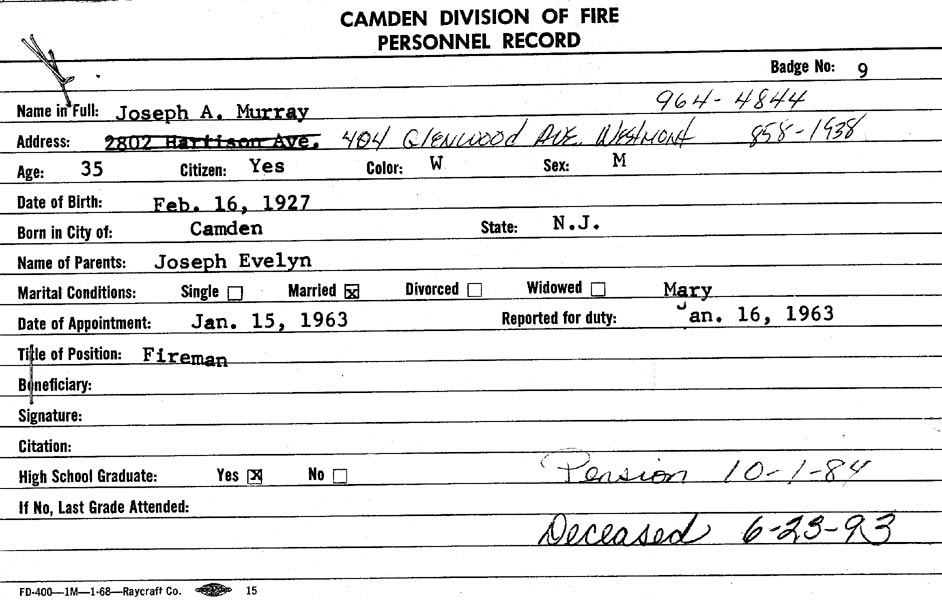 CAMDEN DIVISION OF FIRE
PERSONNEL RECORD
Badge No: 9
964-4844
Name in Full: Joseph A. Murray
Address: 2802 Harrison Ave. 404 GLENWOOD AVE. WESTMONT 858-1938
Age: 35 Citizen: Yes Color: W Sex: M
Date of Birth: Feb. 16, 1927
Born in City of: Camden State: N.J.
Name of Parents: Joseph Evelyn
Marital Conditions: Single Married x Divorced Widowed Mary
Date of Appointment: Jan. 15, 1963 Reported for duty: Jan. 16, 1963
Title of Position: Fireman
Beneficiary:
Signature:
Citation:
High School Graduate: Yes x No Pension 10-1-84
If No, Last Grade Attended:
Deceased 6-23-93
FD-400—1M—1-68—Raycraft Co. 15